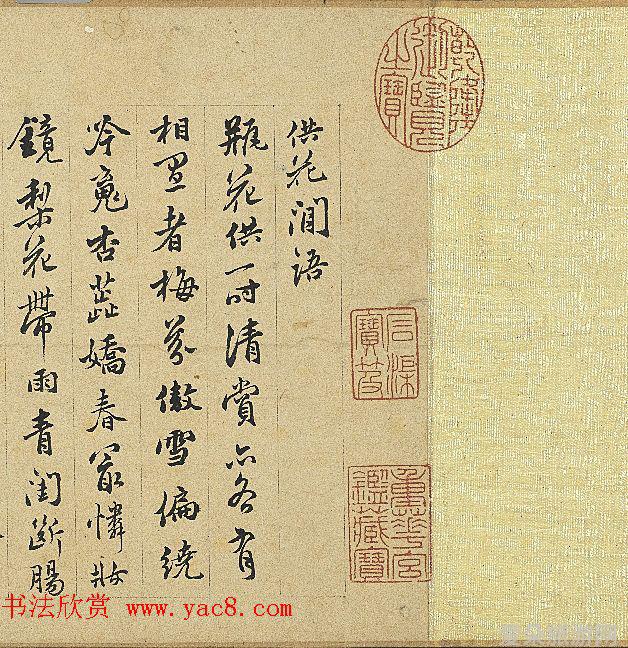 乾隆
御覽
之寶
石渠
寶笈
重華宮
鑑藏寶
供花閒語
瓶花供一时清賞亦各有
相宜者梅芬傲雪偏繞
吟魂杏蕊嬌春冣憐妝
鏡梨花帶雨青閨断腸
书法欣赏 www.yac8.com